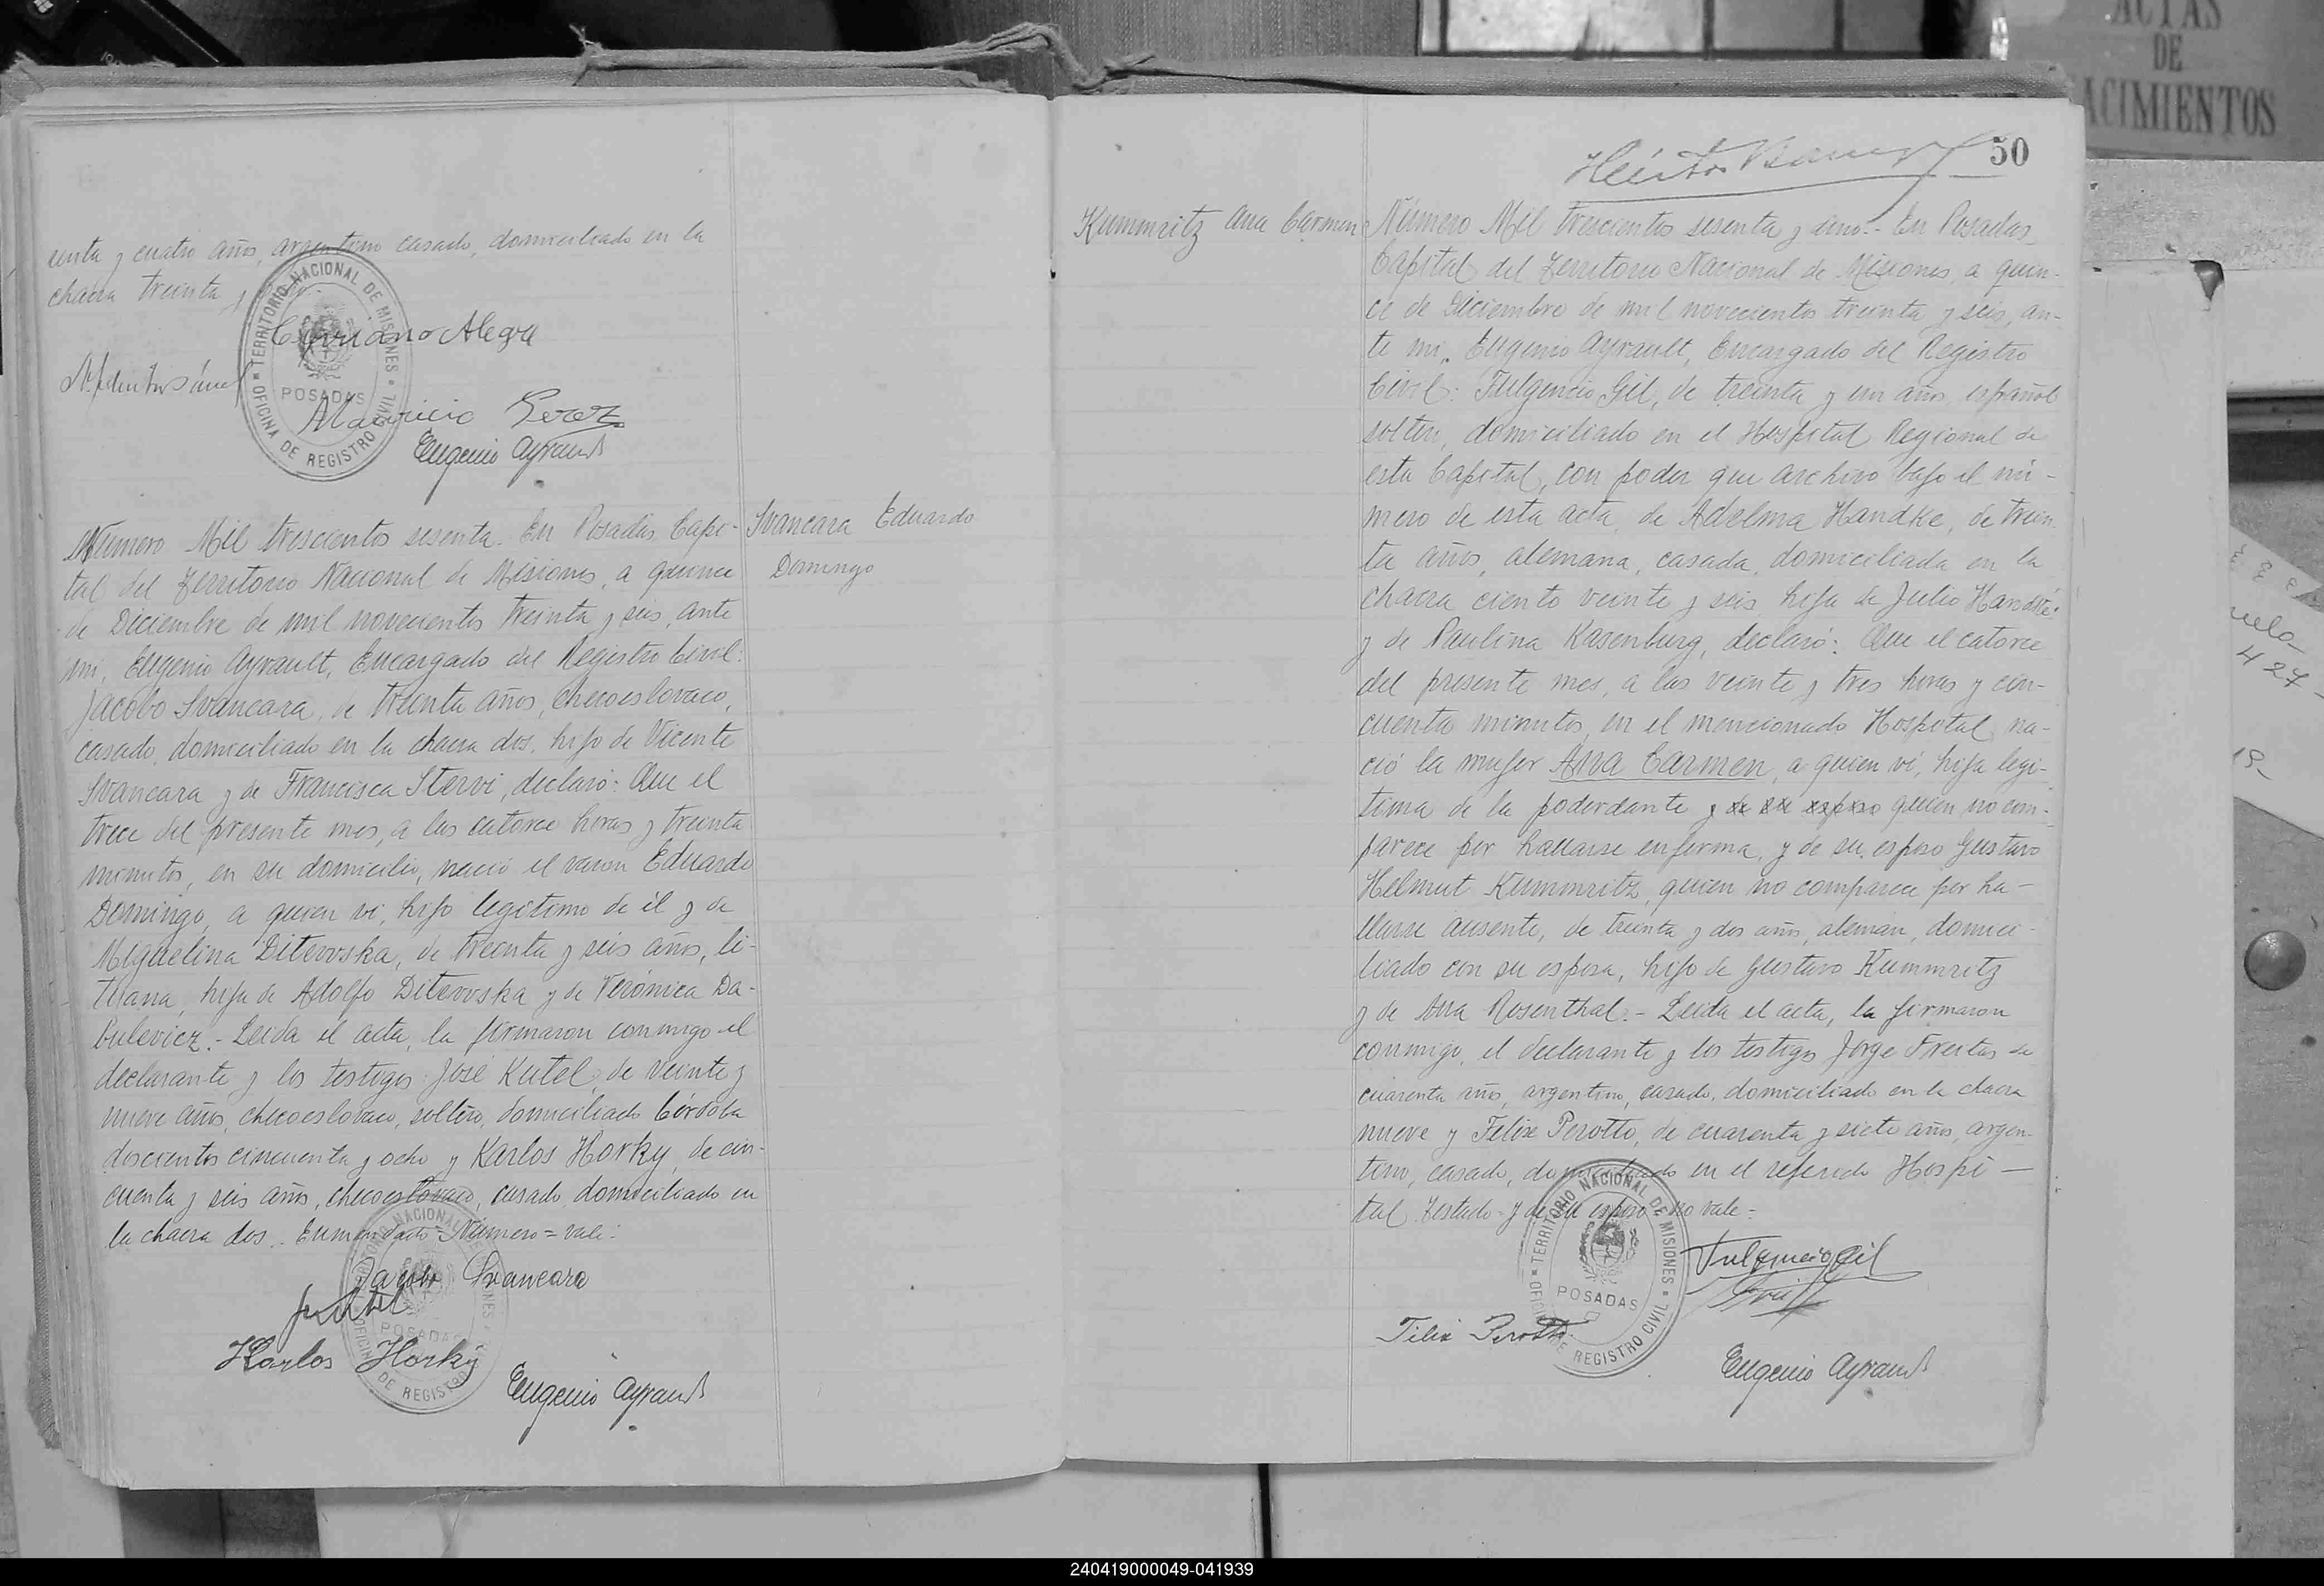 enta y cuatro años, argentino casado, domiciliado en la
chacra treinta y
Cipriano Alegre
Mauricio Perez
Eugenio Ayrault
TERRITORIO NACIONAL DE MISIONES
POSADAS
OFICINA DE REGISTRO CIVIL
Svancara Eduardo
Domingo
Número Mil trescientos sesenta. En Posadas, Capi-
tal del Territorio Nacional de Misiones, a quince
de Diciembre de mil novecientos treinta y seis, ante
mi, Eugenio Ayrault, Encargado del Registro Civil:
Jacobo Svancara, de treinta años, checoeslovaco,
casado, domiciliado en la chacra dos, hijo de Vicente
Svancara y de Francisca Stervi, declaró: Que el
trece del presente mes, a las catorce horas y treinta
minutos, en su domicilio, nació el varon Eduardo
Domingo, a quien vi, hijo legitimo de él y de
Miguelina Ditevvska, de treinta y seis años, li-
tuana, hija de Adolfo Ditevvska y de Verónica Da-
bulevicz.- Leida el acta, la firmaron conmigo el
declarante y los testigos: José Kutel, de veinte y
nueve años, checoeslovaco, soltero, domiciliado Córdoba
doscientos cincuenta y ocho y Karlos Horky, de cin-
cuenta y seis años, checoeslovaco, casado, domiciliado en
la chacra dos. Enmendado=Número=vale:
Jacobo Svancara
Karlos Horky
Eugenio Ayrault
TERRITORIO NACIONAL DE MISIONES
POSADAS
OFICINA DE REGISTRO CIVIL
50
Kummritz Ana Carmen
Número Mil trescientos sesenta y uno.- En Posadas,
Capital del Territorio Nacional de Misiones, a quin-
ce de Diciembre de mil novecientos treinta y seis, an-
te mi, Eugenio Ayrault, Encargado del Registro
Civil: Fulgencio Gil, de treinta y un años, español
soltero, domiciliado en el Hospital Regional de
esta Capital, con poder que archivo bajo el nú-
mero de esta acta, de Adelma Handke, de trein
ta años, alemana, casada, domiciliada en la
chacra ciento veinte y seis, hija de Julio Handke
y de Paulina Kasenburg, declaró: Que el catorce
del presente mes, a las veinte y tres horas y cin-
cuenta minutos, en el mencionado Hospital, na-
ció la mujer Ana Carmen, a quien vi, hija legi-
tima de la poderdante y de su esposo quien no com-
parece por hallarse enferma, y de su esposo Gustavo
Helmut Kummritz, quien no comparece por ha-
llarse ausente, de treinta y dos años, aleman, domici-
liado con su esposa, hijo de Gustavo Kummritz
y de Ana Rosenthal.- Leida el acta, la firmaron
conmigo, el declarante y los testigos Jorge Freitas de
cuarenta años, argentino, casado, domiciliado en la chacra
nueve y Felix Perotto, de cuarenta y siete años, argen-
tino, casado, domiciliado en el referido Hospi-
tal. Testado-y de su esposo-no vale-
Fulgencio Gil
Felix Perotto
Eugenio Ayrault
TERRITORIO NACIONAL DE MISIONES
POSADAS
OFICINA DE REGISTRO CIVIL
ACTAS
DE
ACIMIENTOS
424
19-
240419000049-041939